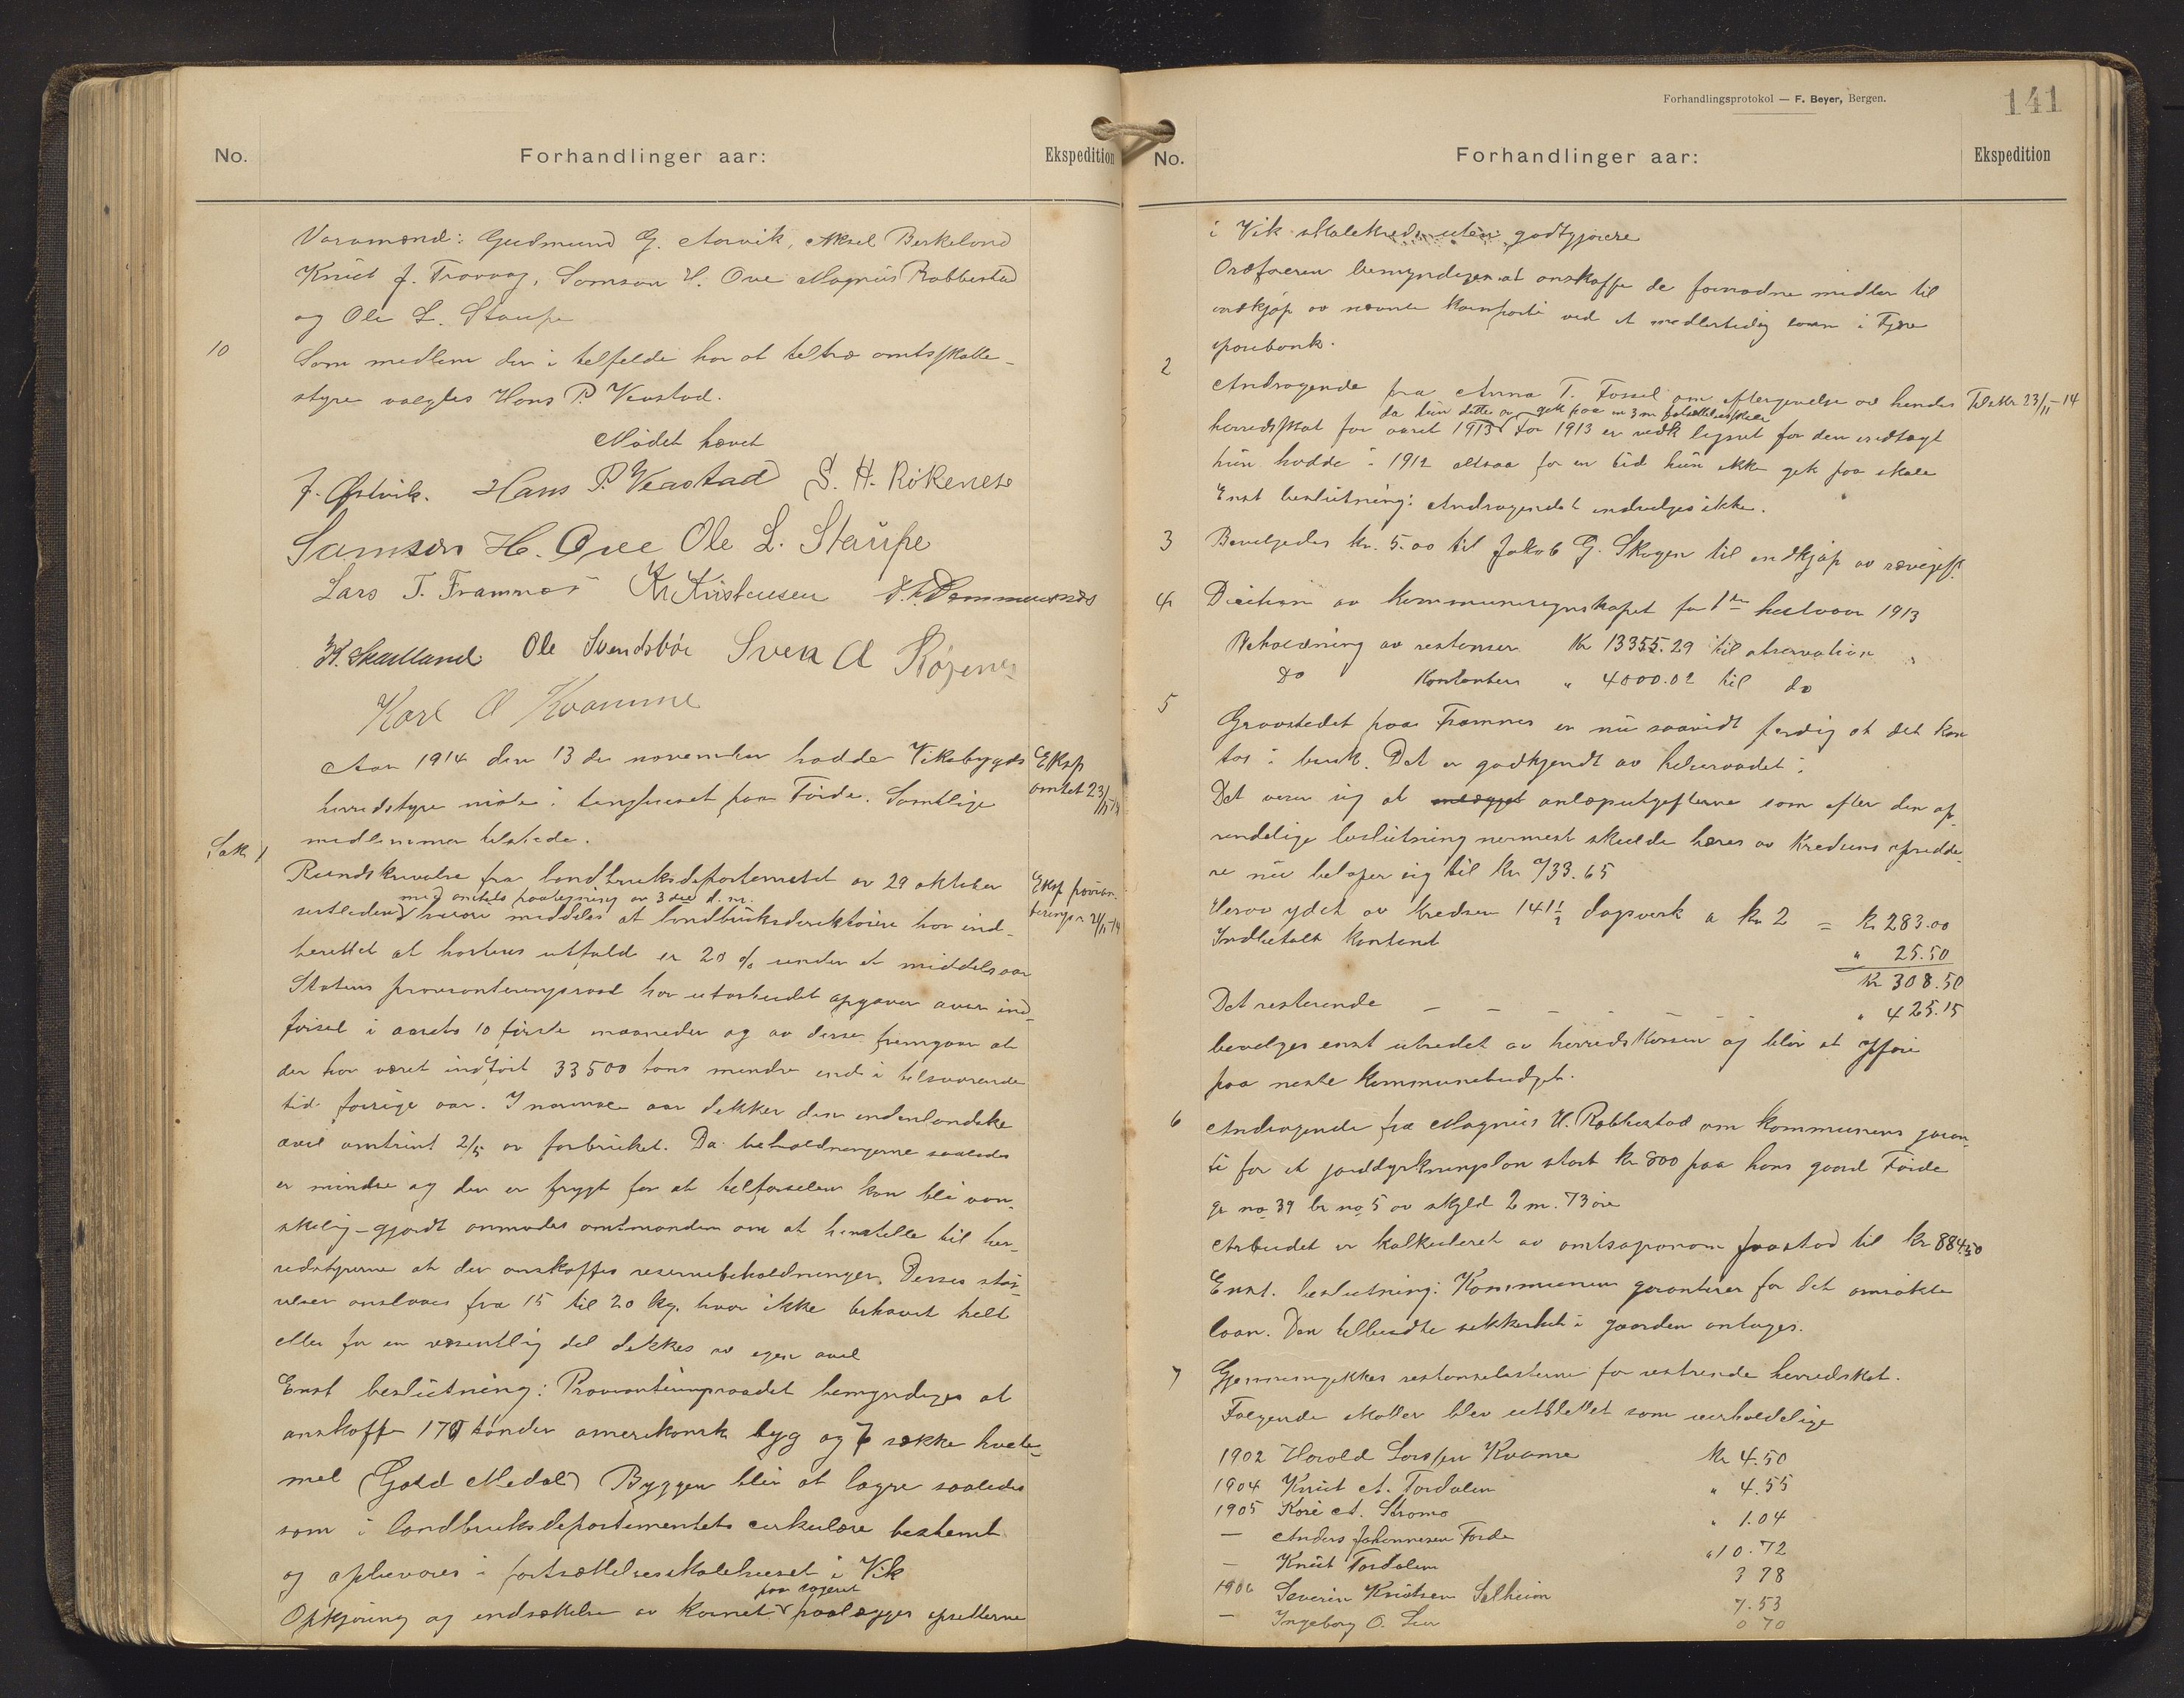 No.
Forhandlinger aar:
Ekspedition
Varamænd: Gudmund G. Aarvik, Aksel Birkeland
Knut J. Trovaag, Samson H. Øvre Magnus Rabbestad
og Ole L. Staupe
10
Som medlem der i tilfelde har at tiltræ amtsskatte-
styre valgtes Hans P. Veastad.
Mødet hævet
J. Østvik. Hans P. Veastad S. H. Rökenes
Samson H. Øvre Ole L. Staupe
Lars T. Framnes Kr Kristensen
H. Skartland Ole Svendsbøe Sven A Röyenes
Karl A Kvamme
Aar 1914 den 13 de november hadde Vikebygds
herredstyre møte i tinghuset paa Førde. Samtlige
medlemmer tilstede.
Eksp
amtet 23/11-14
Sak 1
Rundskrivelse fra landbruksdepartementet av 29 oktober
med amtets paategning av 3die d. m.
sistleden hvori meddeles at landbruksdirektøren har ind-
berettet at høstens utfald er 20 % under et middelsaar
Eksp provian-
teringen 21/11-14
Statens provianteringsraad har utarbeidet opgaver over ind-
førsel i aarets 10 første maaneder og av disse fremgaar at
der har været indført 33500 tons mindre end i tilsvarende
tid forrige aar. I normale aar dekker den indenlandske
avl omtrent 2/5 av forbruket. Da beholdningerne saaledes
er mindre og der er frygt for at tilførselen kan bli van-
skelig-gjordt anmodes amtmanden om at henstille til her-
redstyrerne at der anskaffes reservebeholdninger. Disses stør-
relser anslaaes fra 15 til 20 kg. hvor ikke behovet helt
eller for en væsentlig del dekkes av egen avl
Enst beslutning: Provianteringsraadet bemyndiges at
anskaffe 170 tønder amerikansk byg og 7 sække hvete-
mel (Gold Medal) Byggen blir at lagre saaledes
som i landbruksdepartementets cirkulære bestemt
og opbevares i fortsættelsesskolehuset i Vik
paa lageret
Opkjøring og indsættelse av kornet paalægges opsitterne
Forhandlingsprotokol — F. Beyer, Bergen.
141
No.
Forhandlinger aar:
Ekspedition
i Vik skolekreds uten godtgjørere
Ordføreren bemyndiges at anskaffe de fornødne midler til
indkjøp av nævnte kornparti ved et midlertidig laan i Fjære
sparebank.
2
Andragende fra Anna T. Fossel om eftergivelse av hendes
Tilskr 23/11-14
da hun dette aar gik paa en 3 m fortsættelsesskole
herredsskat for aaret 1913 For 1913 er vedk lignet for den indtægt
hun hadde i 1912 altsaa for en tid hun ikke gik paa skole
Enst beslutning: Andragendet indvilges ikke.
3
Bevilgedes kr. 5.00 til Jakob G. Skogen til indkjøp av rævegift.
4
Decision av kommuneregnskapet for 1ste halvaar 1913
Beholdning av restanser Kr 13355.29 til observation
Do Kontanter " 4000.02 til do
5
Gravstedet paa Framnes er nu saavidt færdig at det kan
tas i bruk. Det er godkjendt av helseraadet.
Det viser sig at anlægsutgifterne som efter den op-
rindelige beslutning nærmest skulde bæres av kredsens opsidde-
re nu beløper sig til kr 733.65
Herav ydet av kredsen 141½ dagsverk a kr 2 = kr 283.00
Indbetalt kontant " 25.50
kr 308.50
Det resterende — — — — — " 425.15
bevilges enst utredet av herredskassen og blir at opføre
paa neste kommunebudget.
6
Andragende fra Magnus H. Rabbestad om kommunens garan-
ti for et jorddyrkningslan stort kr 800 paa hans gaard Førde
gr no 39 br no 5 av skyld 2 m. 73 øre
Arbeidet er kalkuleret av amtsagronom Faastad til kr 884.50
Enst. beslutning: Kommunen garanterer for det omsøkte
laan. Den tilbudte sikkerhet i gaarden antages.
7
Gjennemgikkes restanselisterne for restrende herredskat.
Følgende skatter blev utslettet som uerholdelige
1902 Harald Larssen Kvame Kr 4.50
1904 Knut A. Tordalen " 4.55
1905 Kari A. Strømø " 1.04
— Anders Johannesen Førde " 10.72
— Knut Tordalen 3 78
1906 Severin Knutsen Solheim 7.53
— Ingeborg O. Lier 0 70